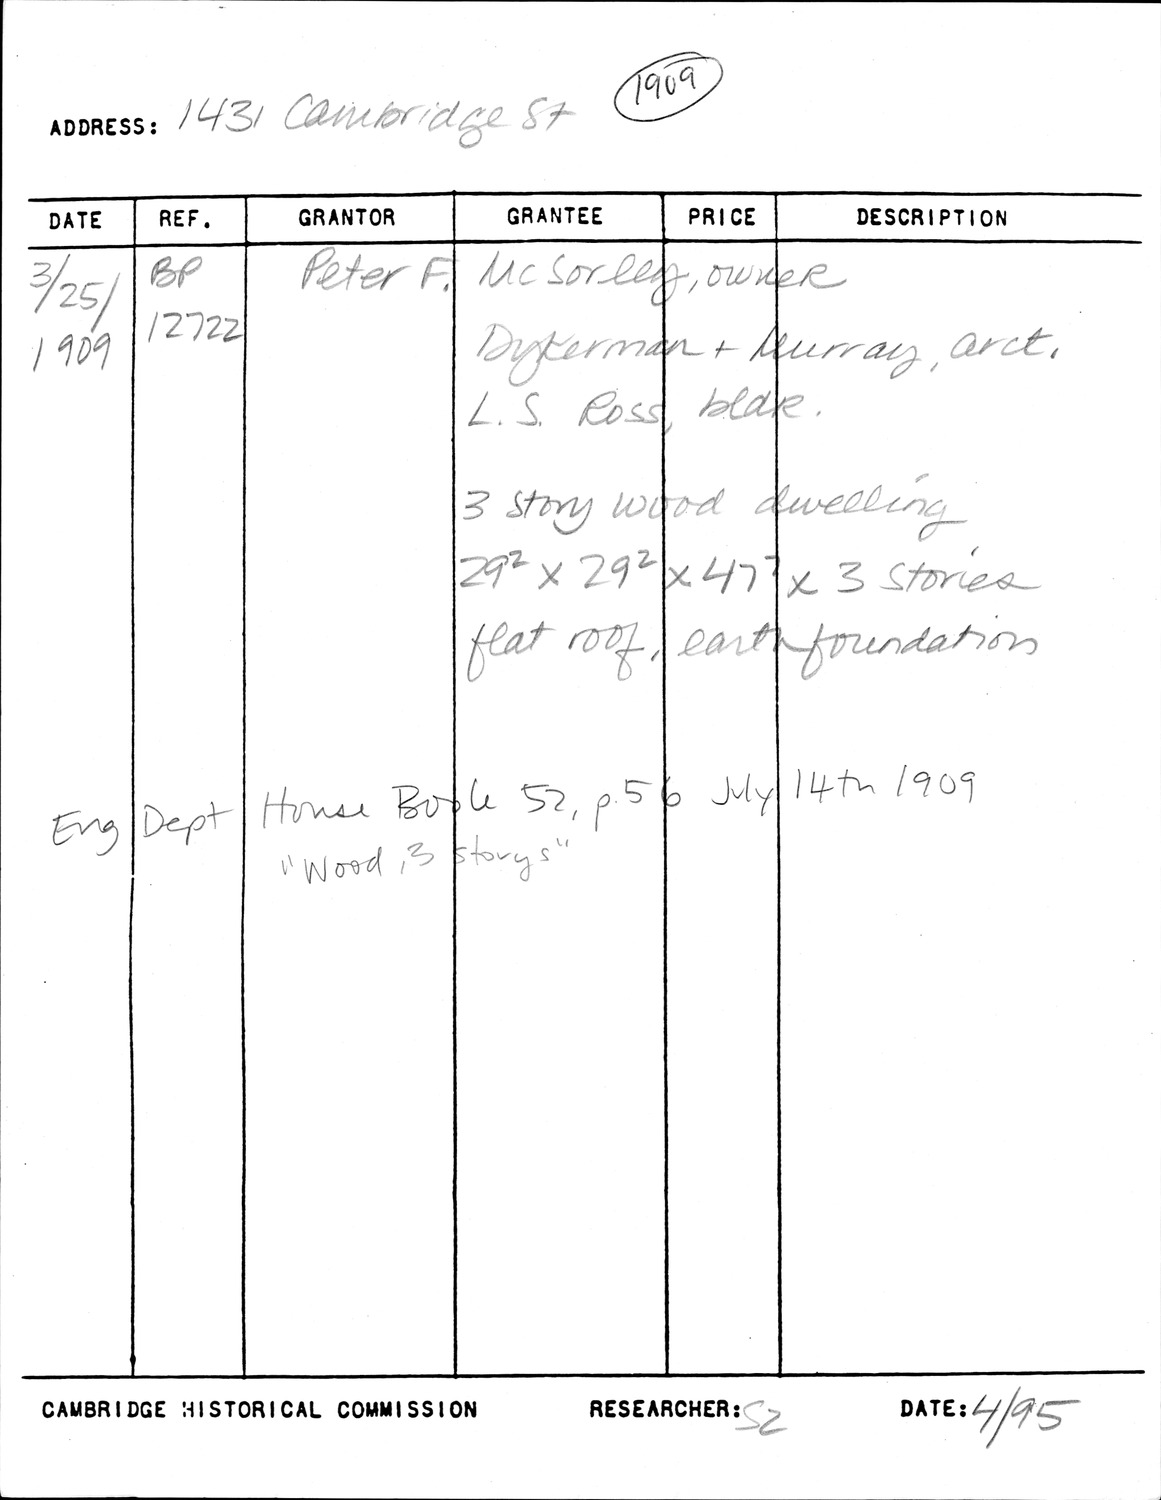 1909
ADDRESS: 1431 Cambridge St
DATE REF. GRANTOR GRANTEE PRICE DESCRIPTION
3/25/ BP Peter F. McSorley, owner
1909 12722
Dykerman + Murray, arct.
L.S. Ross, bldr.
3 story wood dwelling
29² x 29² x 47⁷ x 3 stories
flat roof, earth foundation
Eng Dept House Book 52, p. 56 July 14th 1909
"Wood, 3 storys"
CAMBRIDGE HISTORICAL COMMISSION RESEARCHER: SZ DATE: 4/95